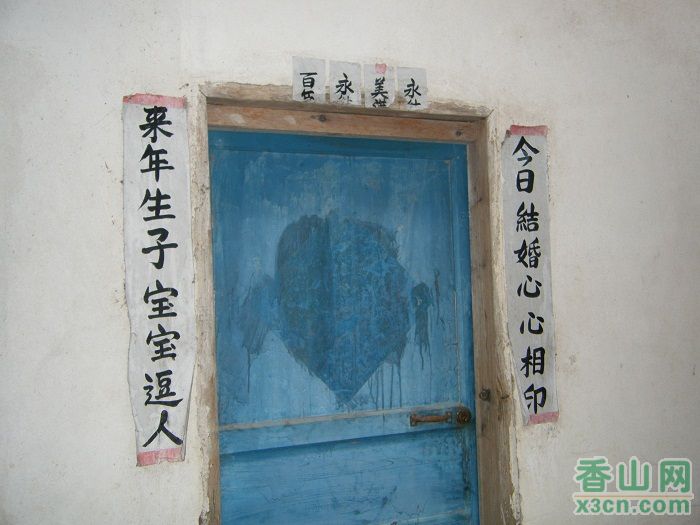 今日結婚心心相印
来年生子宝宝逗人
百年
永
美满
永
香山网
x3cn.com